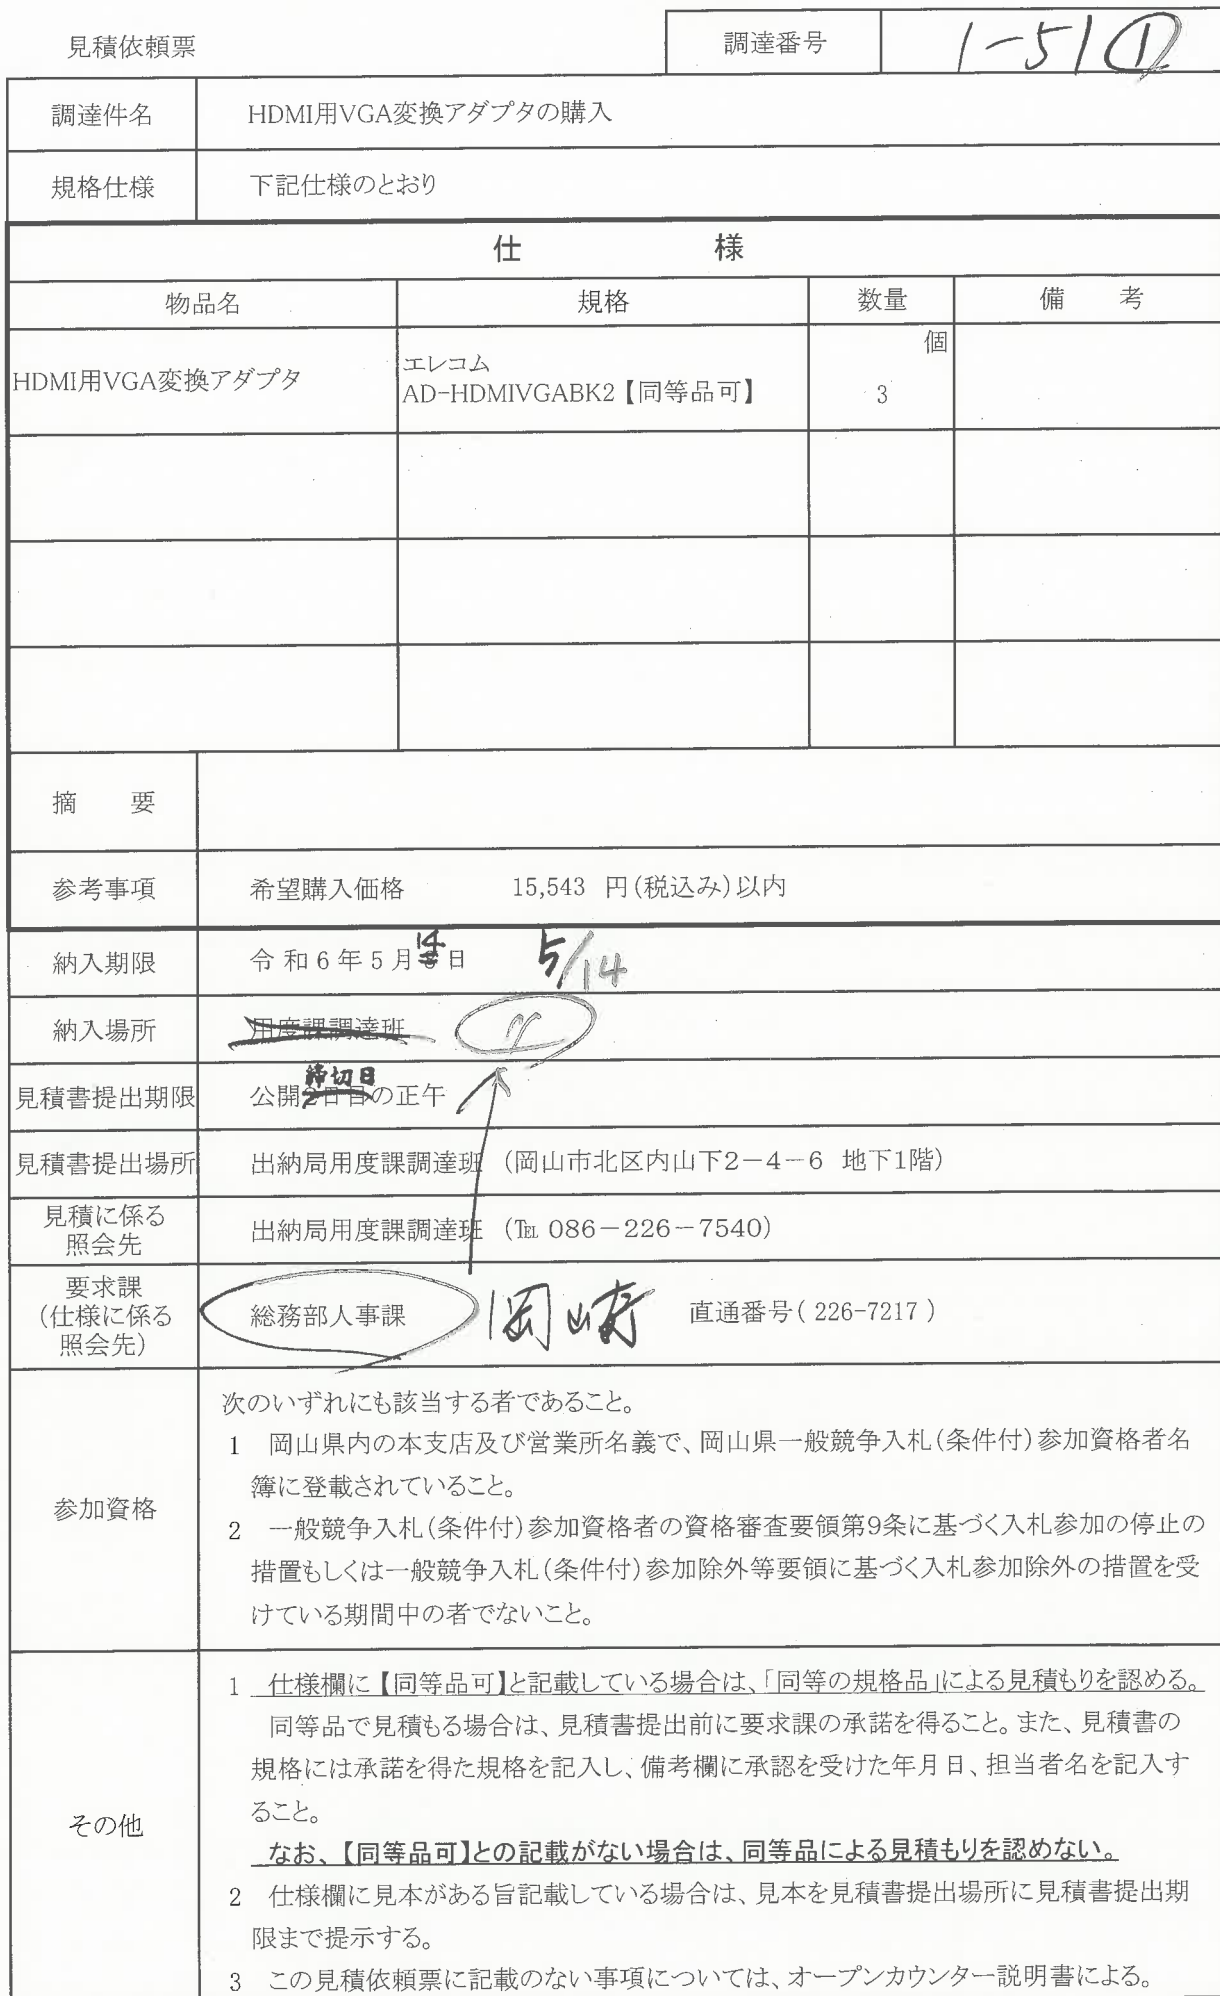 見積依頼票
調達番号 1-51①
調達件名 HDMI用VGA変換アダプタの購入
規格仕様 下記仕様のとおり
仕 様
物品名 規格 数量 備 考
HDMI用VGA変換アダプタ エレコム AD-HDMIVGABK2【同等品可】 個 3
摘 要
参考事項 希望購入価格 15,543 円(税込み)以内
納入期限 令和6年5月14日 5/14
納入場所 用度課調達班 〃
締切日
見積書提出期限 公開2日目の正午
見積書提出場所 出納局用度課調達班 (岡山市北区内山下2-4-6 地下1階)
見積に係る
照会先 出納局用度課調達班 (℡ 086-226-7540)
要求課
(仕様に係る
照会先) 総務部人事課 岡崎 直通番号( 226-7217 )
参加資格
次のいずれにも該当する者であること。
1 岡山県内の本支店及び営業所名義で、岡山県一般競争入札(条件付)参加資格者名
簿に登載されていること。
2 一般競争入札(条件付)参加資格者の資格審査要領第9条に基づく入札参加の停止の
措置もしくは一般競争入札(条件付)参加除外等要領に基づく入札参加除外の措置を受
けている期間中の者でないこと。
その他
1 仕様欄に【同等品可】と記載している場合は、「同等の規格品」による見積もりを認める。
同等品で見積もる場合は、見積書提出前に要求課の承諾を得ること。また、見積書の
規格には承諾を得た規格を記入し、備考欄に承認を受けた年月日、担当者名を記入す
ること。
なお、【同等品可】との記載がない場合は、同等品による見積もりを認めない。
2 仕様欄に見本がある旨記載している場合は、見本を見積書提出場所に見積書提出期
限まで提示する。
3 この見積依頼票に記載のない事項については、オープンカウンター説明書による。